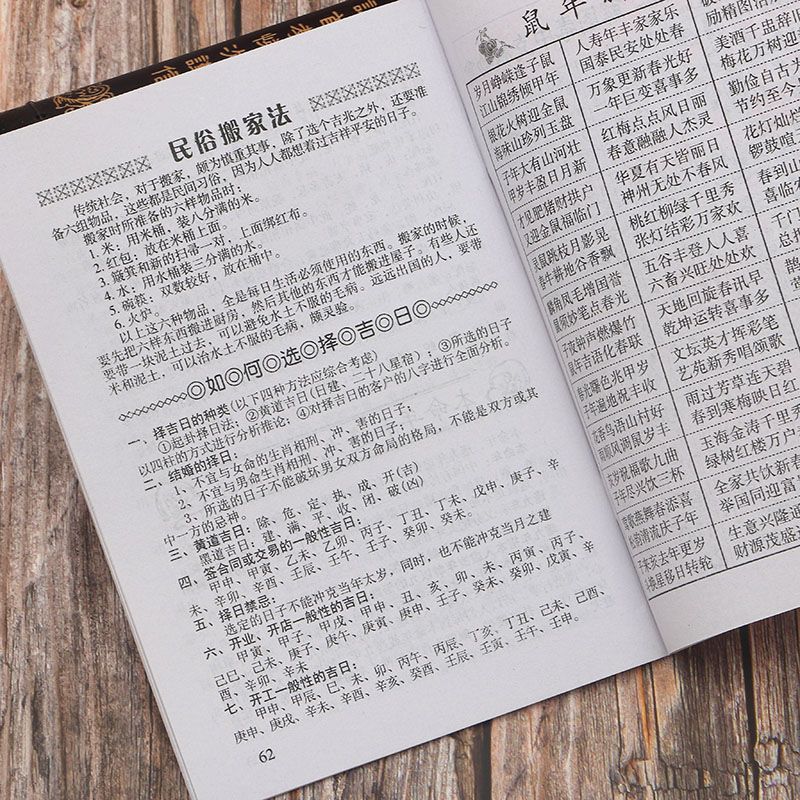 民俗搬家法
传统社会，对于搬家，颇为慎重其事，除了选个吉兆之外，还要准
备六组物品，这些都是民间习俗，因为人人都想着过吉祥平安的日子。
搬家时所准备的六样物品时：
1. 米：用米桶，装八分满的米。
2. 红包：放在米桶上面。
3. 簸箕和新的扫帚一对，上面绑红布。
4. 水：用水桶装三分满的水。
5. 碗筷：双数较好，放在桶中。
6. 火炉。
以上这六种物品，全是每日生活必须使用的东西。搬家的时候，
要先把六样东西搬进厨房，然后其他的东西才能搬进屋子。有些人还
要带一块泥土过去，可以避免水土不服的毛病。远远出国的人，要带
米和泥土，可以治水土不服的毛病，简灵验。
◎如◎何◎选◎择◎吉◎日◎
一、择吉日的种类(以下四种方法应综合考虑)
①起卦择日法；②黄道吉日(日建、二十八星宿)；③所选的日子
以四柱的方式进行分析推论；④对择吉日的客户的八字进行全面分析。
二、结婚的择日：
1、不宜与女命的生肖相刑、冲、害的日子；
2、不宜与男命生肖相刑、冲、害的日子；
3、所选的日子不能破坏男女双方命局的格局，不能是双方或其
中一方的忌神。
三、黄道吉日：除、危、定、执、成、开(吉)
黑道吉日：建、满、平、收、闭、破(凶)
四、签合同或交易的一般性吉日：
甲申、甲寅、乙未、乙卯、丙子、丁丑、丁未、戊申、庚子、辛
未、辛卯、辛酉、壬辰、壬午、壬子、癸卯、癸未。
五、择日禁忌：
选定的日子不能冲克当年太岁，同时，也不能冲克当月之建
六、开业、开店一般性的吉日：
甲寅、甲子、甲戌、甲申、丑、亥、卯、未、丙寅、丙子、
己巳、己未、庚子、庚午、庚寅、庚申、壬子、癸未、癸卯、戊寅、辛
酉、辛卯、辛未
七、开工一般性的吉日：
甲申、甲辰、巳、未、卯、丙午、丙辰、丁亥、丁丑、己未、己酉、
庚申、庚戌、辛未、辛酉、辛亥、癸酉、壬辰、壬寅、壬午、壬申。
62
鼠年
岁月峥嵘逢子鼠 人寿年丰家家乐 励精图治
江山锦绣恒甲年 国泰民安处处春
银花火树迎金鼠 万象更新春光好 美酒千盅辞旧
海味山珍列玉盘 一年巨变喜事多 梅花万树迎
子年大有山河壮 红梅点点风日丽 勤俭自古为
甲岁丰盈日月新 春意融融人杰灵 节约至今
才见肥猪财拱户 华夏有天皆丽日 花灯灿烂
又迎金鼠福临门 神州无处不春风 锣鼓喧
灵鼠跳枝月影晃 桃红柳绿千里秀 春到山
春牛耕地谷香飘 张灯结彩万家欢 喜临
五谷丰登人人喜 千门
鼠须妙笔点春光 六畜兴旺处处欢 总把
子夜钟声燃爆竹 天地回旋春讯早 鹊
鼠年吉语化春联 乾坤运转喜事多
春光曙色兆甲岁 文坛英才挥彩笔
子年遍地祝丰收 艺苑新秀唱颂歌
花香鸟语山村好 雨过芳草连天碧
雨顺风调鼠岁丰 春到寒梅映日红
玉海金涛千里秀
子年尽兴饮三杯 绿树红楼万户
莺歌燕舞春添喜 全家共饮新春
举国同迎富
子来亥去年更岁 生意兴隆
斗换星移日转轮 财源茂盛